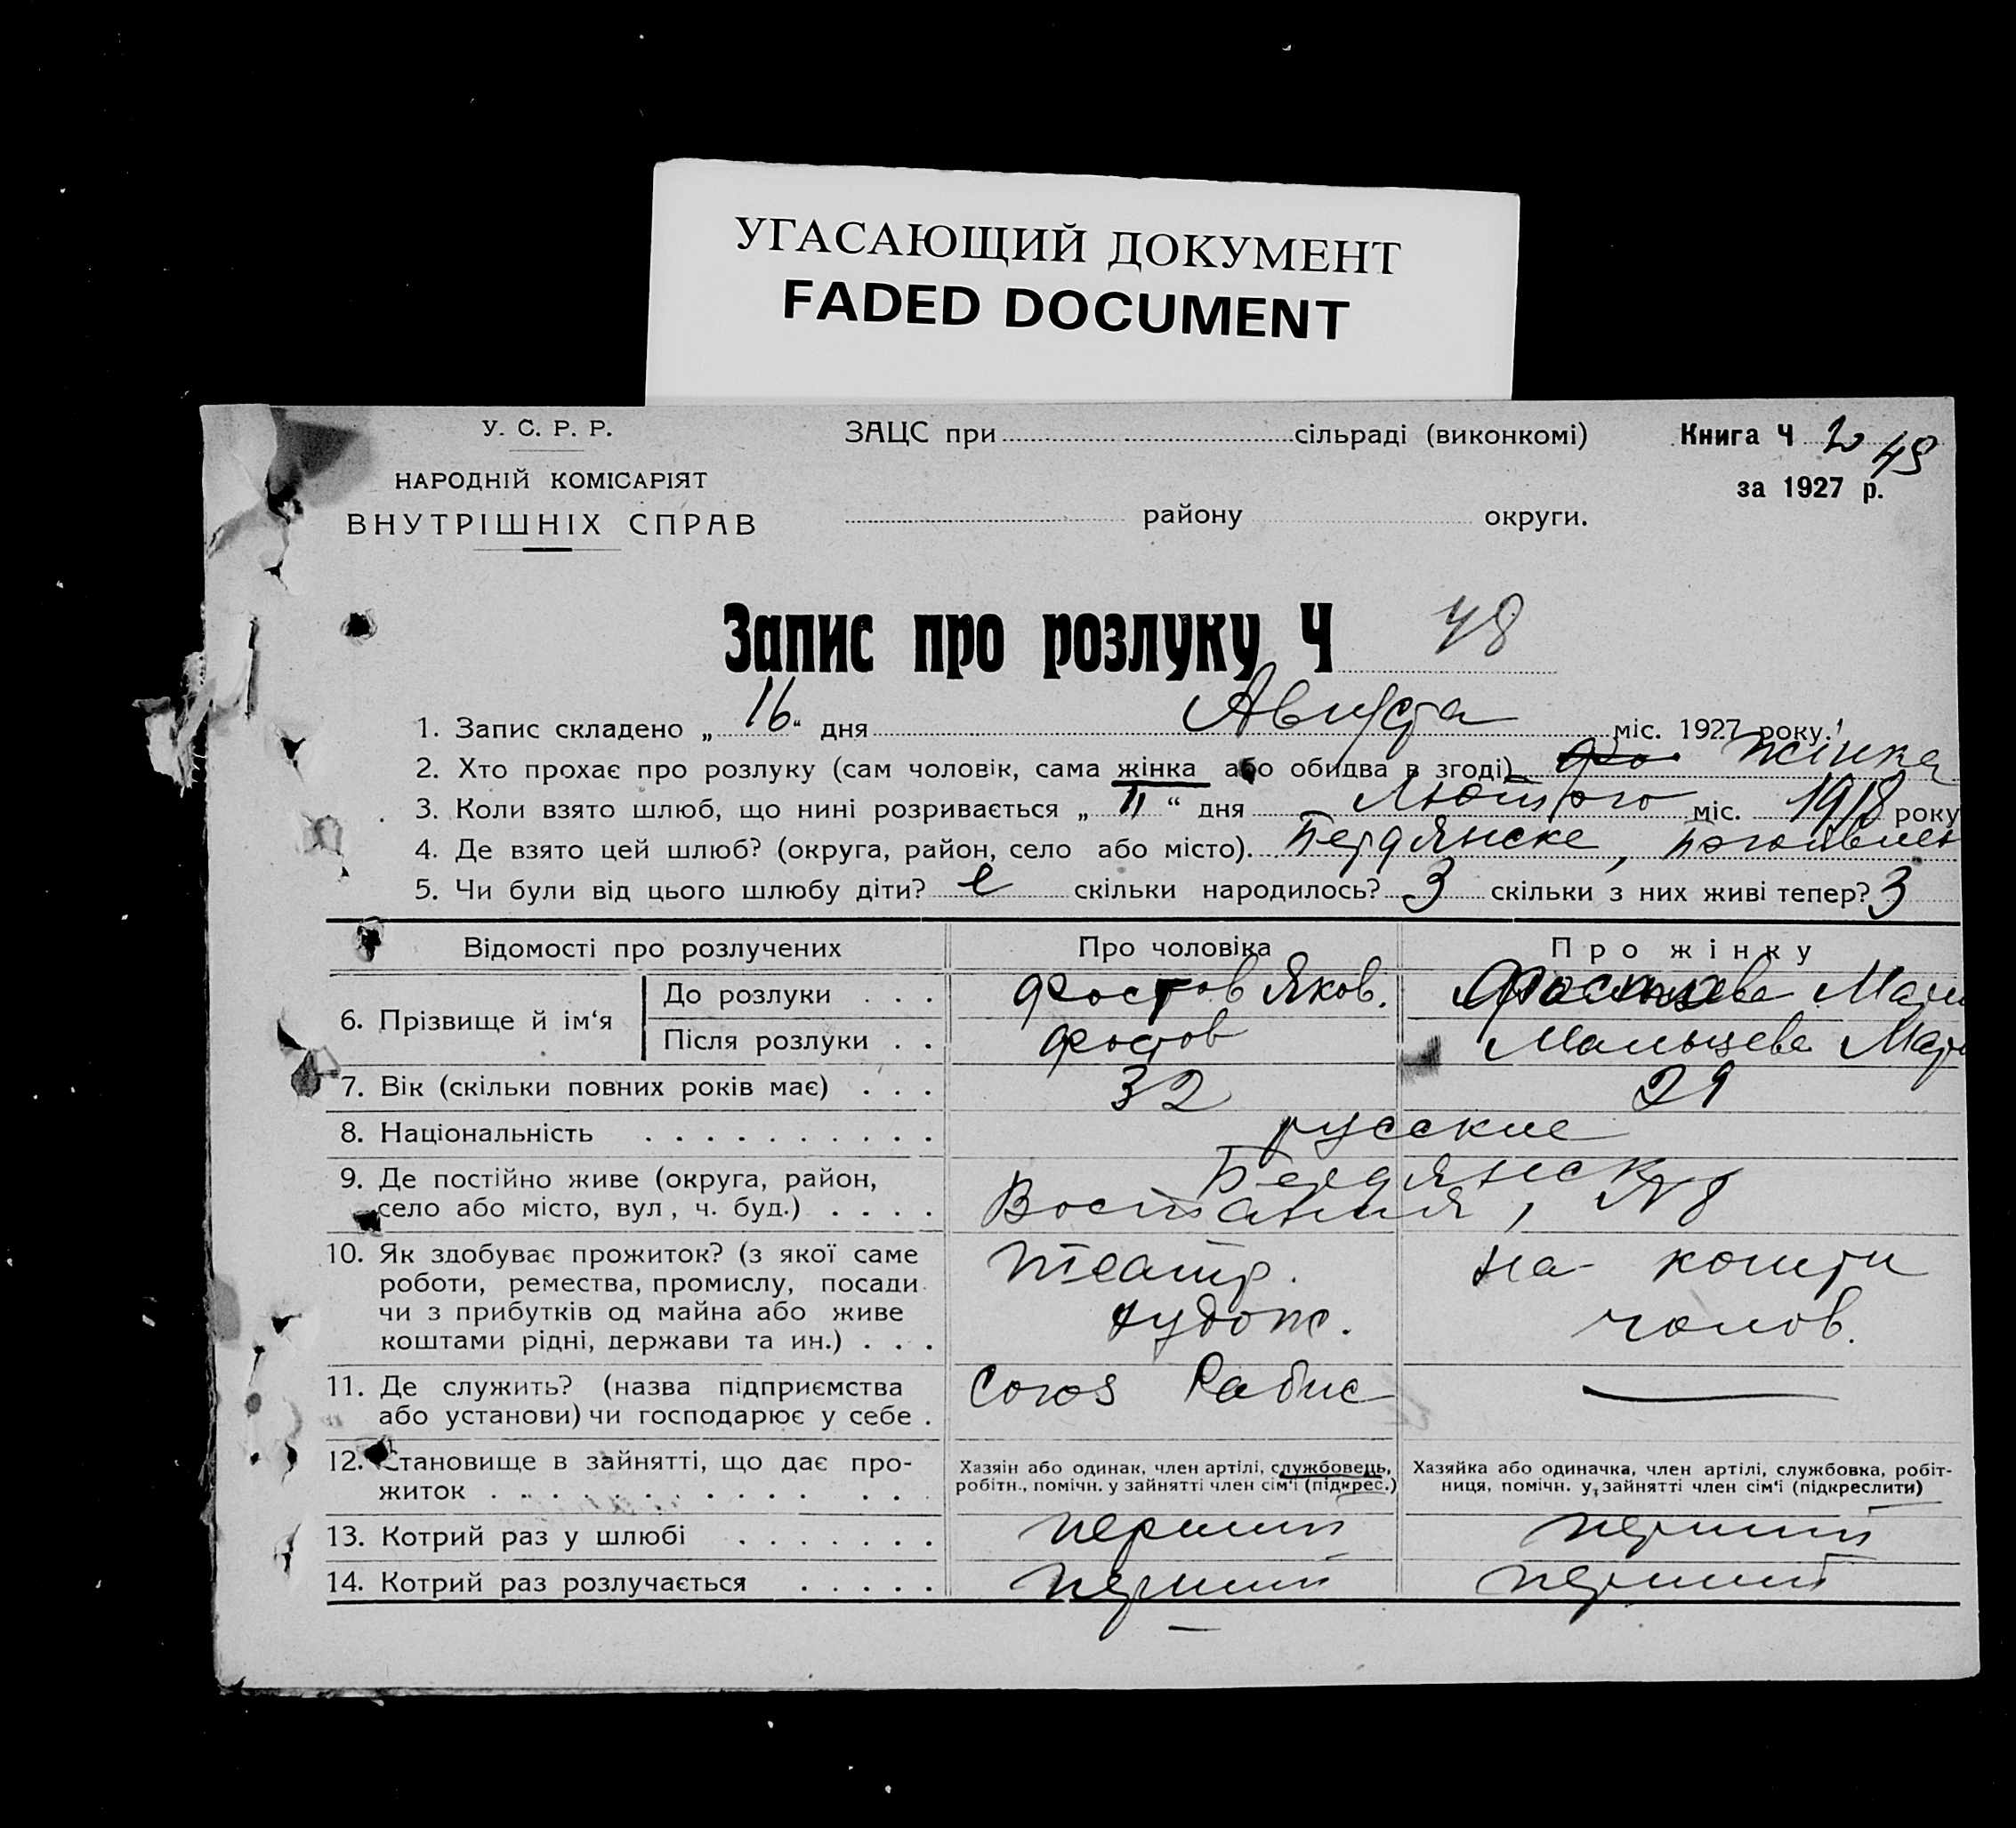 УГАСАЮЩИЙ ДОКУМЕНТ
FADED DOCUMENT
У. С. Р. Р.
НАРОДНІЙ КОМІСАРІЯТ
ВНУТРІШНІХ СПРАВ
ЗАЦС при сільраді (виконкомі)
району округи.
Книга Ч 2
за 1927 р.
Запис про розлуку Ч 48
1. Запис складено „16“ дня Августа міс. 1927 року.
2. Хто прохає про розлуку (сам чоловік, сама жінка або обидва в згоді) жінка
3. Коли взято шлюб, що нині розривається „11“ дня Лютого міс. 1918 року
4. Де взято цей шлюб? (округа, район, село або місто). Бердянске,
5. Чи були від цього шлюбу діти? е скільки народилось? 3 скільки з них живі тепер? 3
Відомості про розлучених Про чоловіка Про жінку
6. Прізвище й ім‘я
До розлуки . . . Фостов Яков.
Після розлуки . . Фостов Мальцева
7. Вік (скільки повних років має) . . . 32 29
8. Національність . . . . . . . . . . русские
9. Де постійно живе (округа, район, Бердянск
село або місто, вул, ч. буд.) . . . . Востания, №8
10. Як здобуває прожиток? (з якої саме театр. на кошти
роботи, ремества, промислу, посади
чи з прибутків од майна або живе худож. чолов.
коштами рідні, держави та ин.) . . .
11. Де служить? (назва підприємства Союз Рабис
або установи) чи господарює у себе .
12. Становище в зайнятті, що дає про-
житок . . . . . . . . . . . .
Хазяін або одинак, член артілі, службовець,
робітн., помічн. у зайнятті член сім‘ї (підкрес.)
Хазяйка або одиначка, член артілі, службовка, робіт-
ниця, помічн. у зайнятті член сім‘ї (підкреслити)
13. Котрий раз у шлюбі . . . . . . . перший перший
14. Котрий раз розлучається . . . . . перший перший